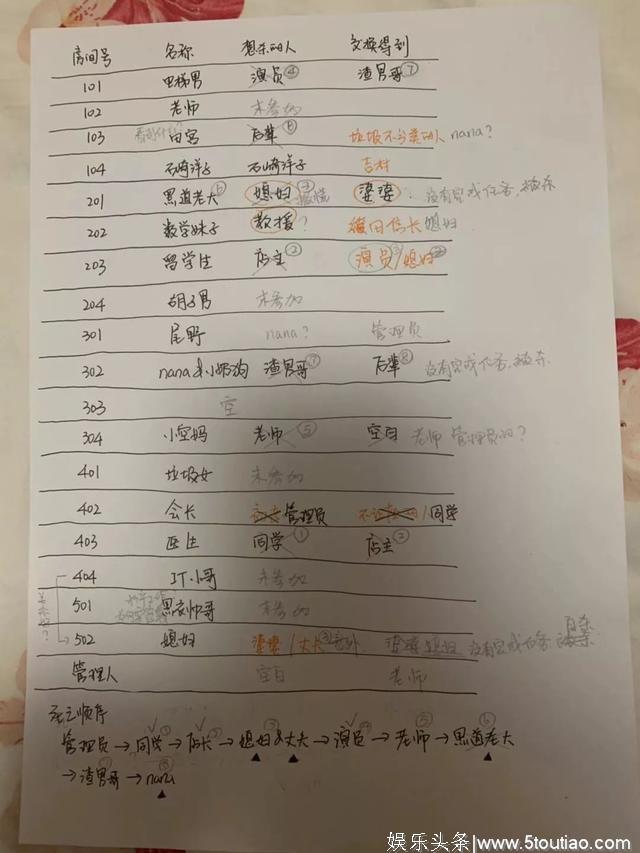 房间号 名称 想杀的人 交换得到
101 电梯男 演员④ 渣男哥⑦
102 老师 未参加
103 田宫 后辈⑧ 垃圾不分类的人 nana?
104 石崎洋子 石崎洋子 吉村
201 黑道老大⑥ 媳妇 婆婆 没有完成任务,被杀
202 数学妹子 教授? 织田信长 媳妇
203 留学生 店主② 演员/媳妇
204 胡子男 未参加
301 尾野 nana? 管理员
302 nana&小奶狗 渣男哥⑦ 后辈⑧ 没有完成任务,被杀
303 空
304 小空妈 老师⑤ 空白 老师 管理员的?
401 垃圾女 未参加
402 会长 管理员 /同学
403 医生 同学① 店主②
404 IT小哥 未参加
501 黑衣帅哥 未参加
502 媳妇 婆婆/丈夫 婆婆 媳妇 没有完成任务 自杀
管理人 空白 老师
死亡顺序
管理员→同学①→店长②→媳妇&丈夫③→演员④→老师⑤→黑道老大⑥
→渣男哥⑦→nana⑧
娱乐头条/www.5toutiao.com